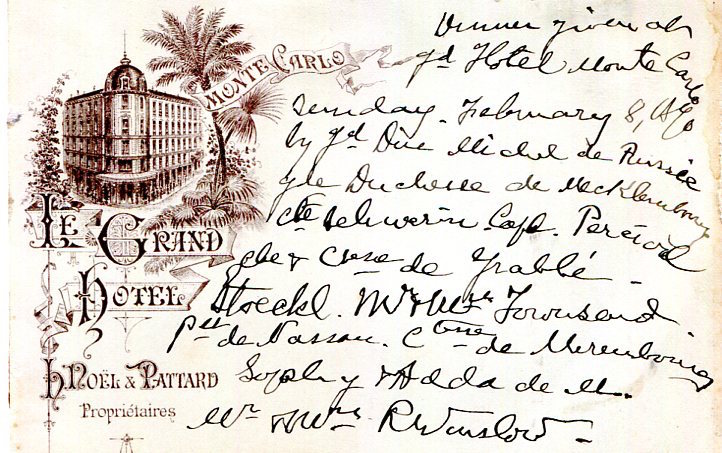 MONTE CARLO
LE GRAND
HOTEL
NOËL & PATTARD
Propriétaires
Dinner given at
gd Hotel Monte Carlo
Sunday. February 8,
by gd Duc Michel de Russie
gde Duchesse de Mecklembourg
cte Schwerin Capt. Percival
cte & Ctsse de
Stoeckl. Mr & Mrs Townsend
Pss de Nassau. Ctesse de Merenbourg
Sophy & Adda de M.
Mr & Mrs R Winslow